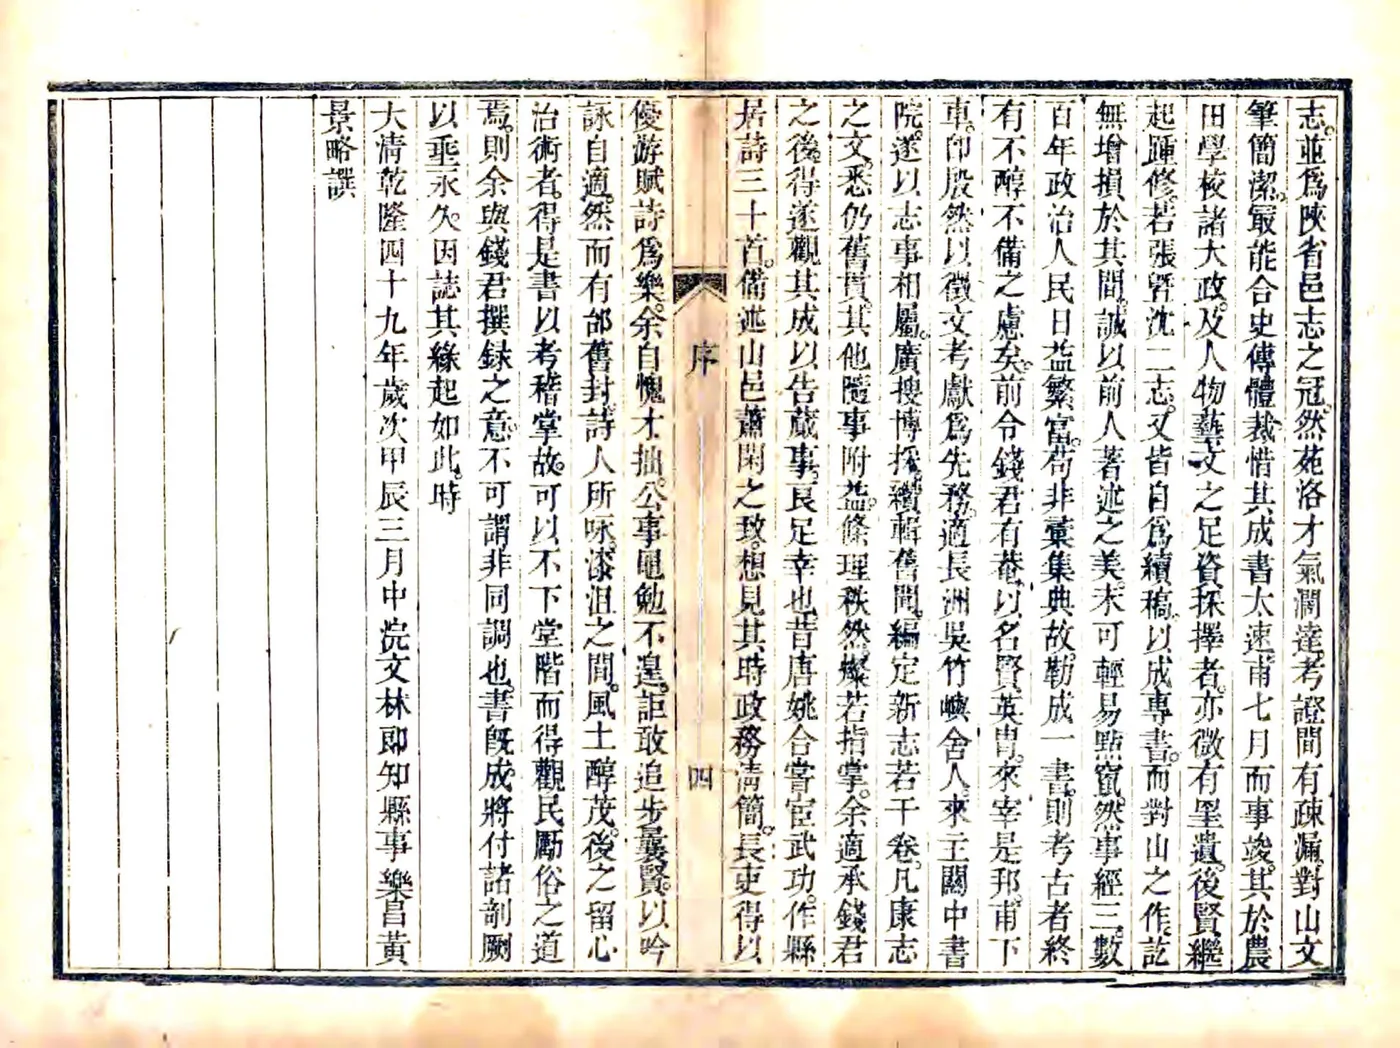 志。並為陝省邑志之冠。然苑洛才氣濶達。考證間有疎漏。對山文
筆簡潔。最能合史傳體裁。惜其成書太速。甫七月而事竣。其於農
田學校諸大政。及人物藝文之足資採擇者。亦微有墨遺。後賢繼
起踵修。若張曁沈二志。又皆自為續稿。以成專書。而對山之作。訖
無增損於其間。誠以前人著述之美。未可輕易點竄。然事經三數
百年。政治人民日益繁富。苟非彙集典故。勒成一書。則考古者終
有不醇不備之慮矣。前令錢君有菴。以名賢英冑。來宰是邦。甫下
車。卽殷然以徵文考獻為先務。適長洲吳竹嶼舍人來主關中書
院。遂以志事相屬。廣搜博採。續輯舊聞。編定新志若干卷。凡康志
之文。悉仍舊貫。其他隨事附益。條理秩然。燦若指掌。余適承錢君
之後。得遂觀其成。以告蕆事。良足幸也。昔唐姚合嘗宦武功。作縣
居詩三十首。備述山邑蕭閑之致。想見其時政務清簡。長吏得以
序
四
優游賦詩為樂。余自愧才拙。公事黽勉不遑。詎敢追步曩賢。以吟
詠自適。然而有邰舊封。詩人所咏。漆沮之間。風土醇茂。後之留心
治術者。得是書以考稽掌故。可以不下堂階而得觀民厲俗之道
焉。則余與錢君撰録之意。不可謂非同調也。書旣成。將付諸剞劂
以垂永久。因誌其緣起如此。時
大清乾隆四十九年歲次甲辰三月中浣文林郎知縣事樂昌黃
景略譔